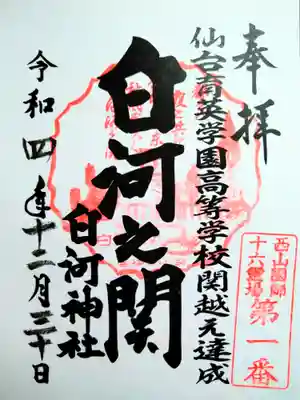 奉拝
仙台育英学園高等学校関越え達成
白河之関
白河神社
令和四年十二月三十日
西山國師
十六霊場
第一番